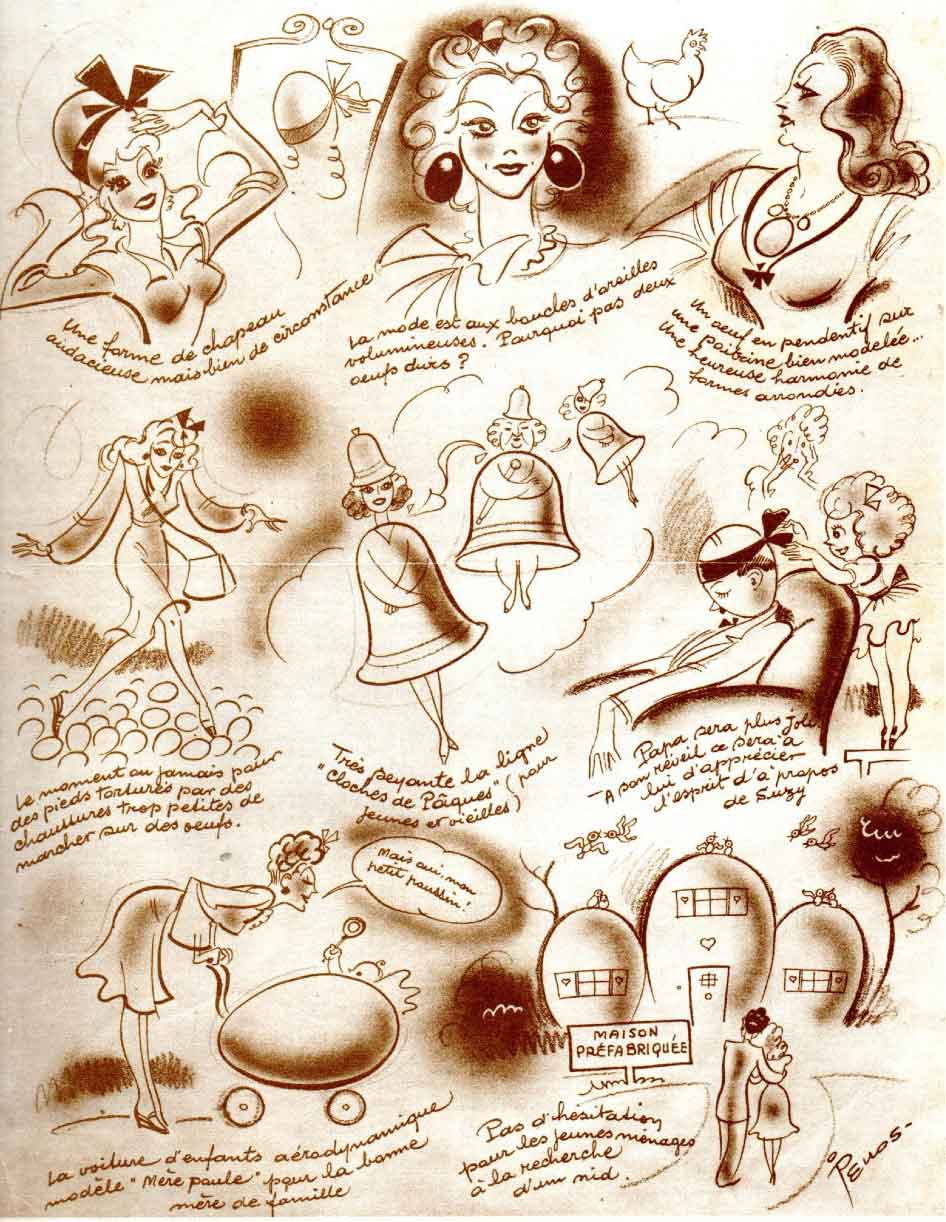 Une forme de chapeau
audacieuse mais bien de circonstance
La mode est aux boucles d'oreilles
volumineuses. Pourquoi pas deux
oeufs durs ?
Un oeuf en pendentif sur
une poitrine bien modelée...
Une heureuse harmonie de
formes arrondies.
Le moment ou jamais pour
des pieds torturés par des
chaussures trop petites de
marcher sur des oeufs.
Très seyante la ligne
"cloches de Pâques" (pour
jeunes et vieilles)
Papa sera plus joli
à son réveil ce sera à
lui d'apprécier
l'esprit d'à propos
de Suzy
Mais oui, mon
petit poussin!
La voiture d'enfants aérodynamique
modèle "Mère poule" pour la bonne
mère de famille
MAISON
PRÉFABRIQUÉE
Pas d'hésitation
pour les jeunes ménages
à la recherche
d'un nid.
PENOS-